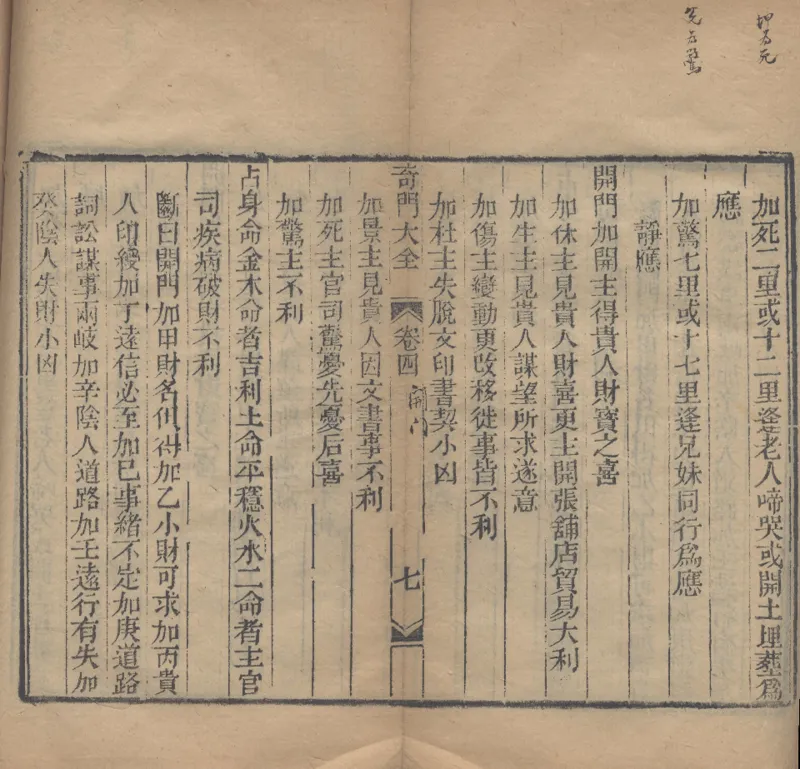 加死二里或十二里逢老人啼哭或開土埋塟爲
應
加驚七里或十七里逢兄妹同行爲應
靜應
開門加開主得貴人財寶之喜
加休主見貴人財喜更主開張舖店貿易大利
加生主見貴人謀望所求遂意
加傷主變動更改移徙事皆不利
加杜主失脫文印書契小凶
奇門大全 卷四 開門 七
加景主見貴人因文書事不利
加死主官司驚憂先憂后喜
加驚主不利
占身命金木命者吉利土命平穩火水二命者主官
司疾病破財不利
斷曰開門加甲財名俱得加乙小財可求加丙貴
人印綬加丁遠信必至加巳事緒不定加庚道路
詞訟謀事兩岐加辛陰人道路加壬遠行有失加
癸陰人失財小凶